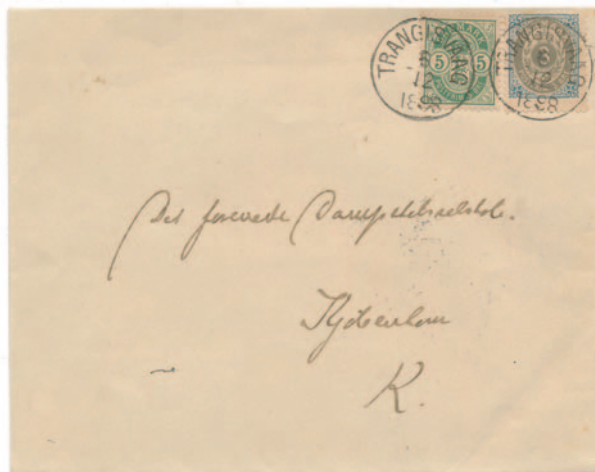 TRANGISVAAG
6
12
1898
5 5
TRANGISVAAG
6
12
1898
Det forenede Dampskibsselskab.
Kjøbenhavn
K.